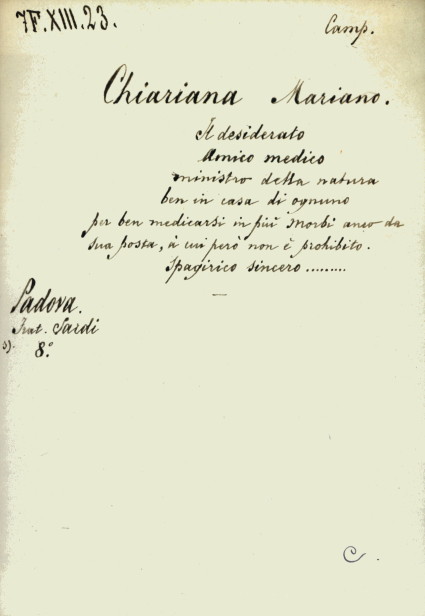 7F.XIII.23.
Camp.
Chiariana Mariano.
Il desiderato
Amico medico
ministro della natura
ben in casa di ognuno
per ben medicarsi in più Morbi anco da
sua posta, à cui però non è prohibito.
Spagirico sincero .........
Padova.
Frat. Sardi
5).
8.º
C .